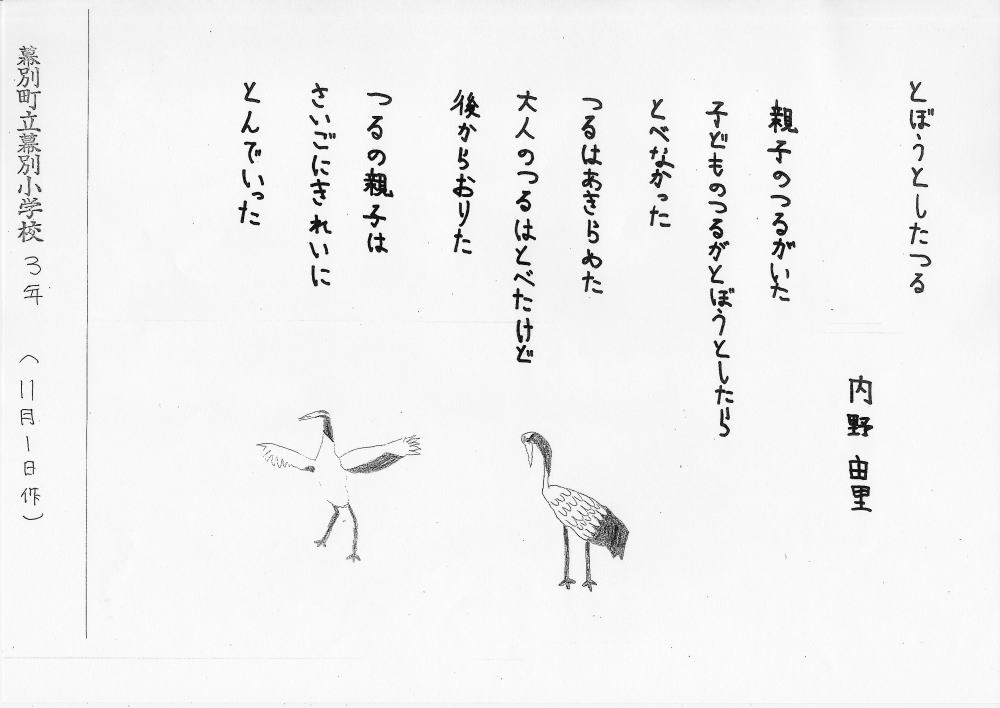 とぼうとしたつる
内野由里
親子のつるがいた
子どものつるがとぼうとしたら
とべなかった
つるはあきらめた
大人のつるはとべたけど
後からおりた
つるの親子は
さいごにきれいに
とんでいった
幕別町立幕別小学校 3年 (11月1日作)